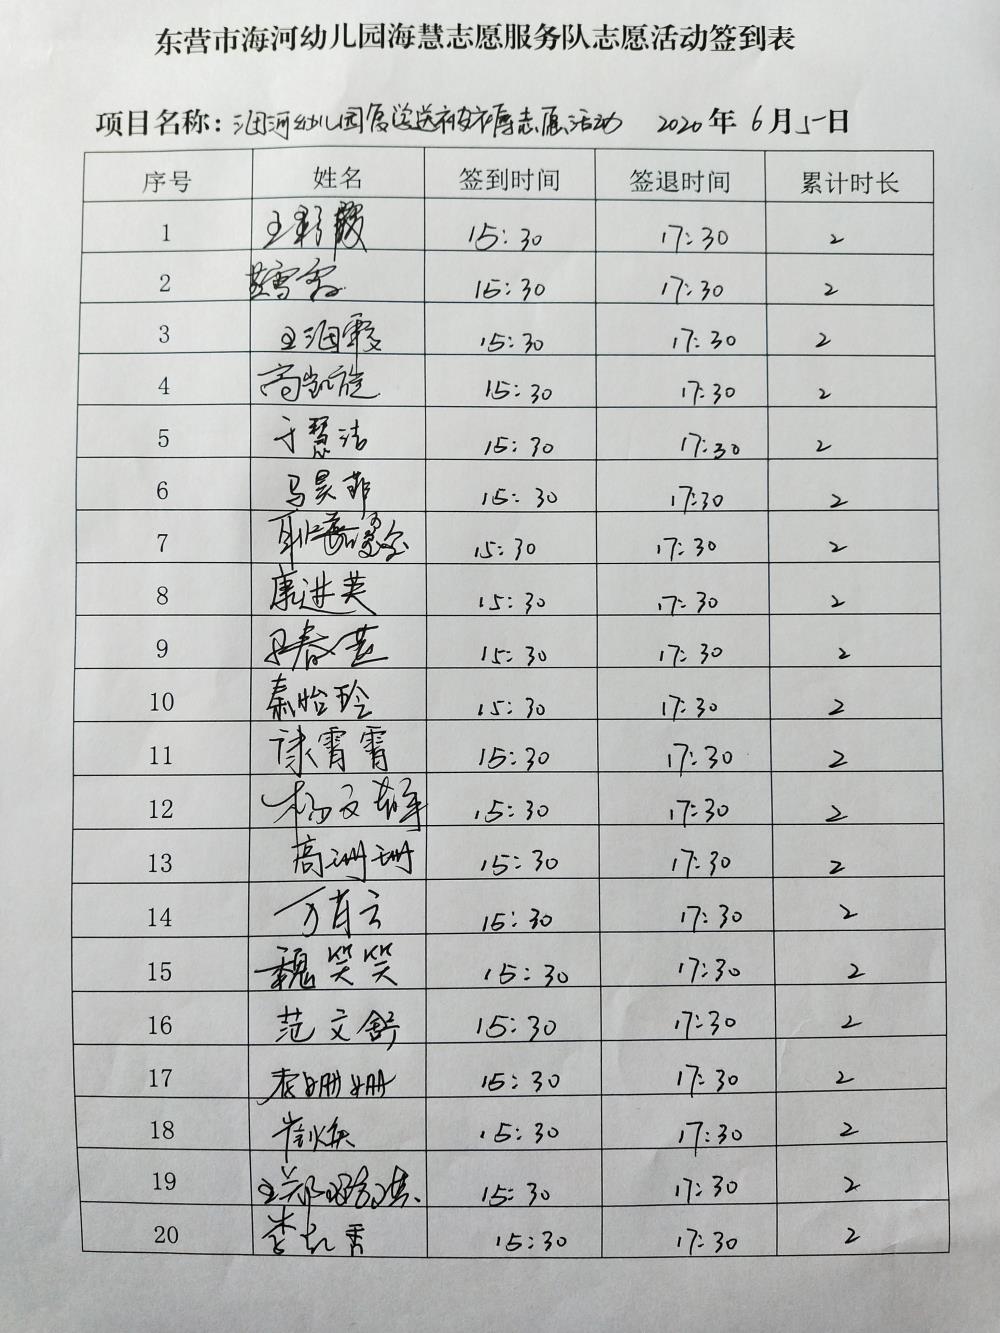 东营市海河幼儿园海慧志愿服务队志愿活动签到表
项目名称：海河幼儿园 志愿活动 2020年6月5日
序号 姓名 签到时间 签退时间 累计时长
1 王彩霞 15:30 17:30 2
2 15:30 17:30 2
3 王海霞 15:30 17:30 2
4 高凯旋 15:30 17:30 2
5 于慧洁 15:30 17:30 2
6 马昊菲 15:30 17:30 2
7 15:30 17:30 2
8 康进英 15:30 17:30 2
9 春燕 15:30 17:30 2
10 秦怡玲 15:30 17:30 2
11 霄霄 15:30 17:30 2
12 杨文 15:30 17:30 2
13 高珊珊 15:30 17:30 2
14 万肖云 15:30 17:30 2
15 魏笑笑 15:30 17:30 2
16 范文舒 15:30 17:30 2
17 姗姗 15:30 17:30 2
18 15:30 17:30 2
19 15:30 17:30 2
20 李 15:30 17:30 2